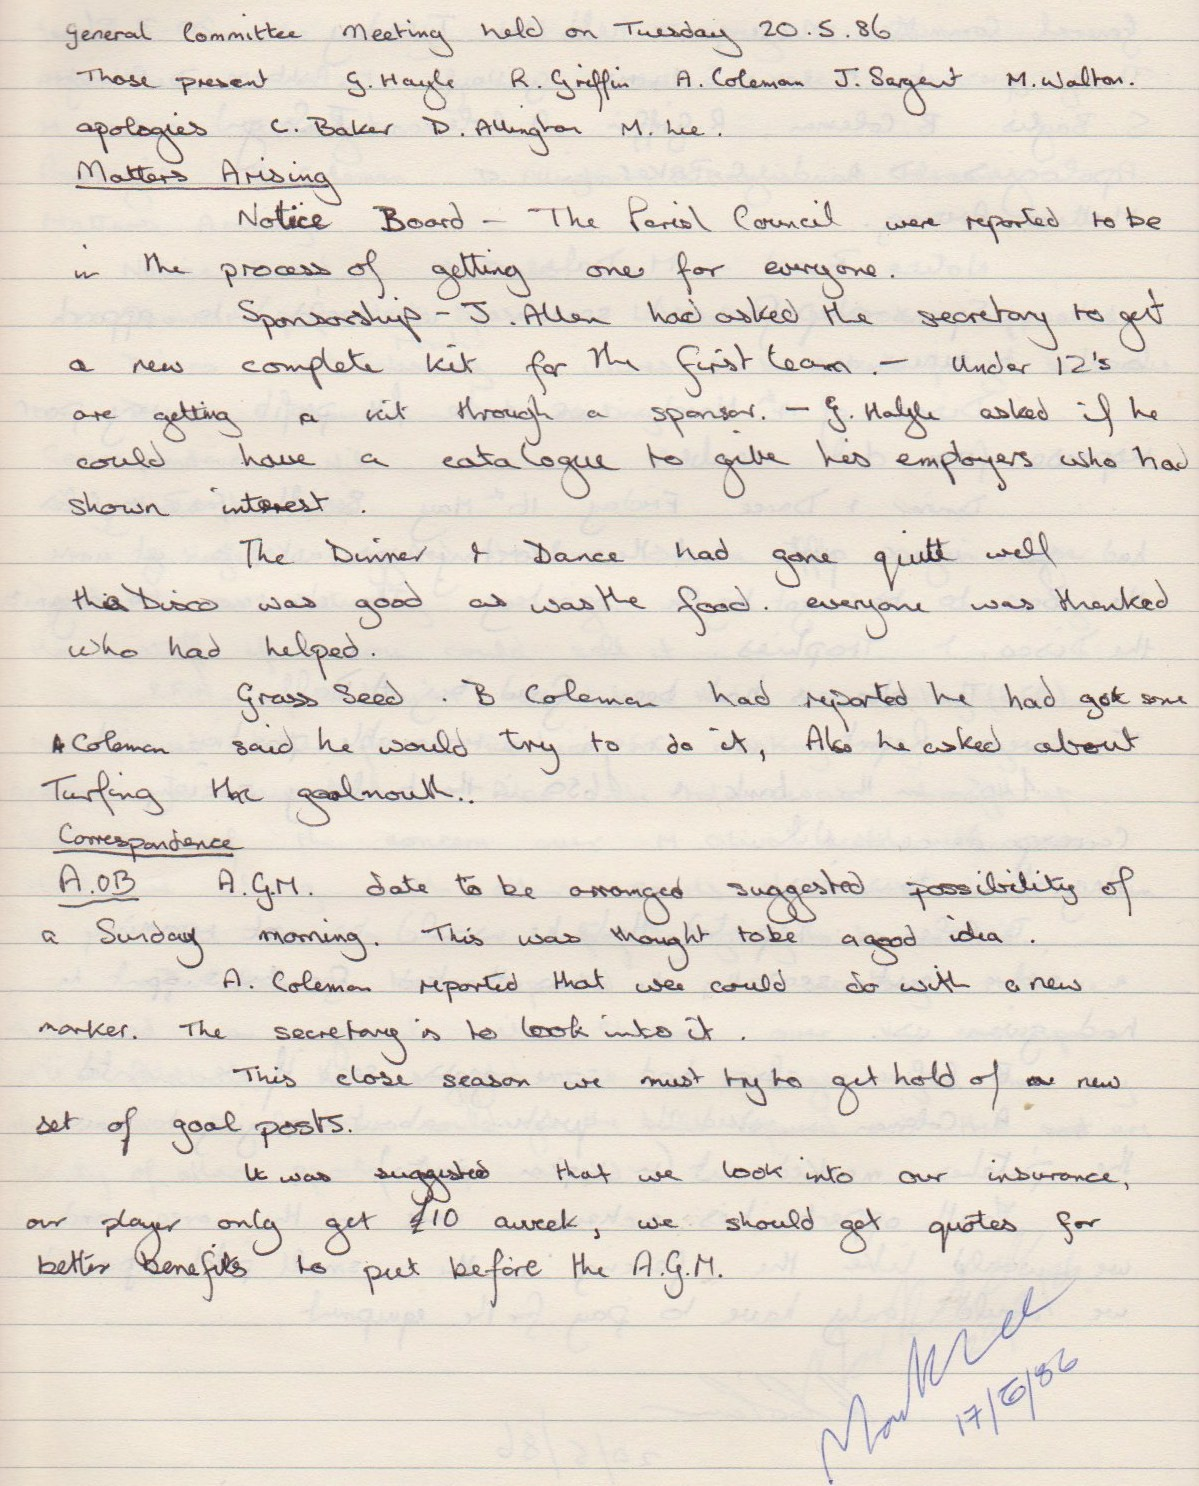 General Committee Meeting held on Tuesday 20.5.86
Those present G. Hayle R. Griffin A. Coleman J. Sargent M. Walton.
apologies C. Baker D. Allington M. Lee.
Matters Arising
Notice Board - The Parish Council were reported to be
in the process of getting one for everyone.
Sponsorship - J. Allen had asked the secretary to get
a new complete kit for the first team. - Under 12's
are getting a kit through a sponsor. - G. Hayle asked if he
could have a catalogue to give his employers who had
shown interest.
The Dinner & Dance had gone quite well
the Disco was good as was the food. everyone was thanked
who had helped.
Grass Seed. B Coleman had reported he had got some
A Coleman said he would try to do it, Also he asked about
Turfing the goalmouth..
Correspondence
A.O.B A.G.M. date to be arranged suggested possibility of
a Sunday morning. This was thought to be a good idea.
A. Coleman reported that wee could do with a new
marker. The secretary is to look into it.
This close season we must try to get hold of a new
set of goal posts.
It was suggested that we look into our insurance,
our player only get £10 a week, we should get quotes for
better benefits to put before the A.G.M.
Mark Lee
17/6/86